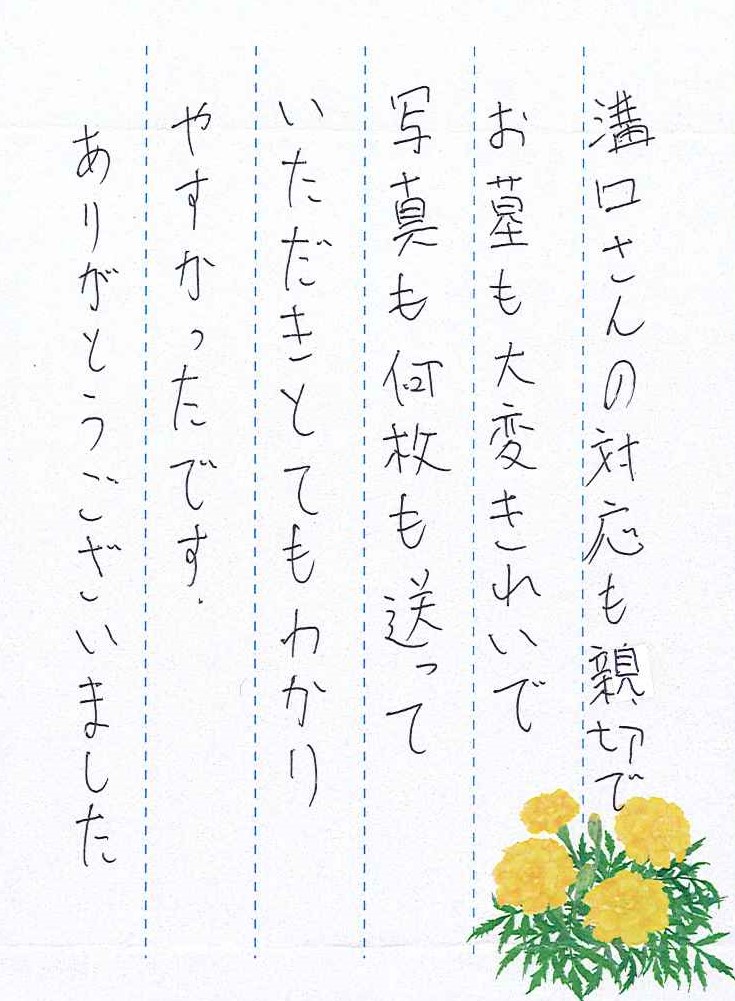 溝口さんの対応も親切で
お墓も大変きれいで
写真も何枚も送って
いただきとてもわかり
やすかったです.
ありがとうございました